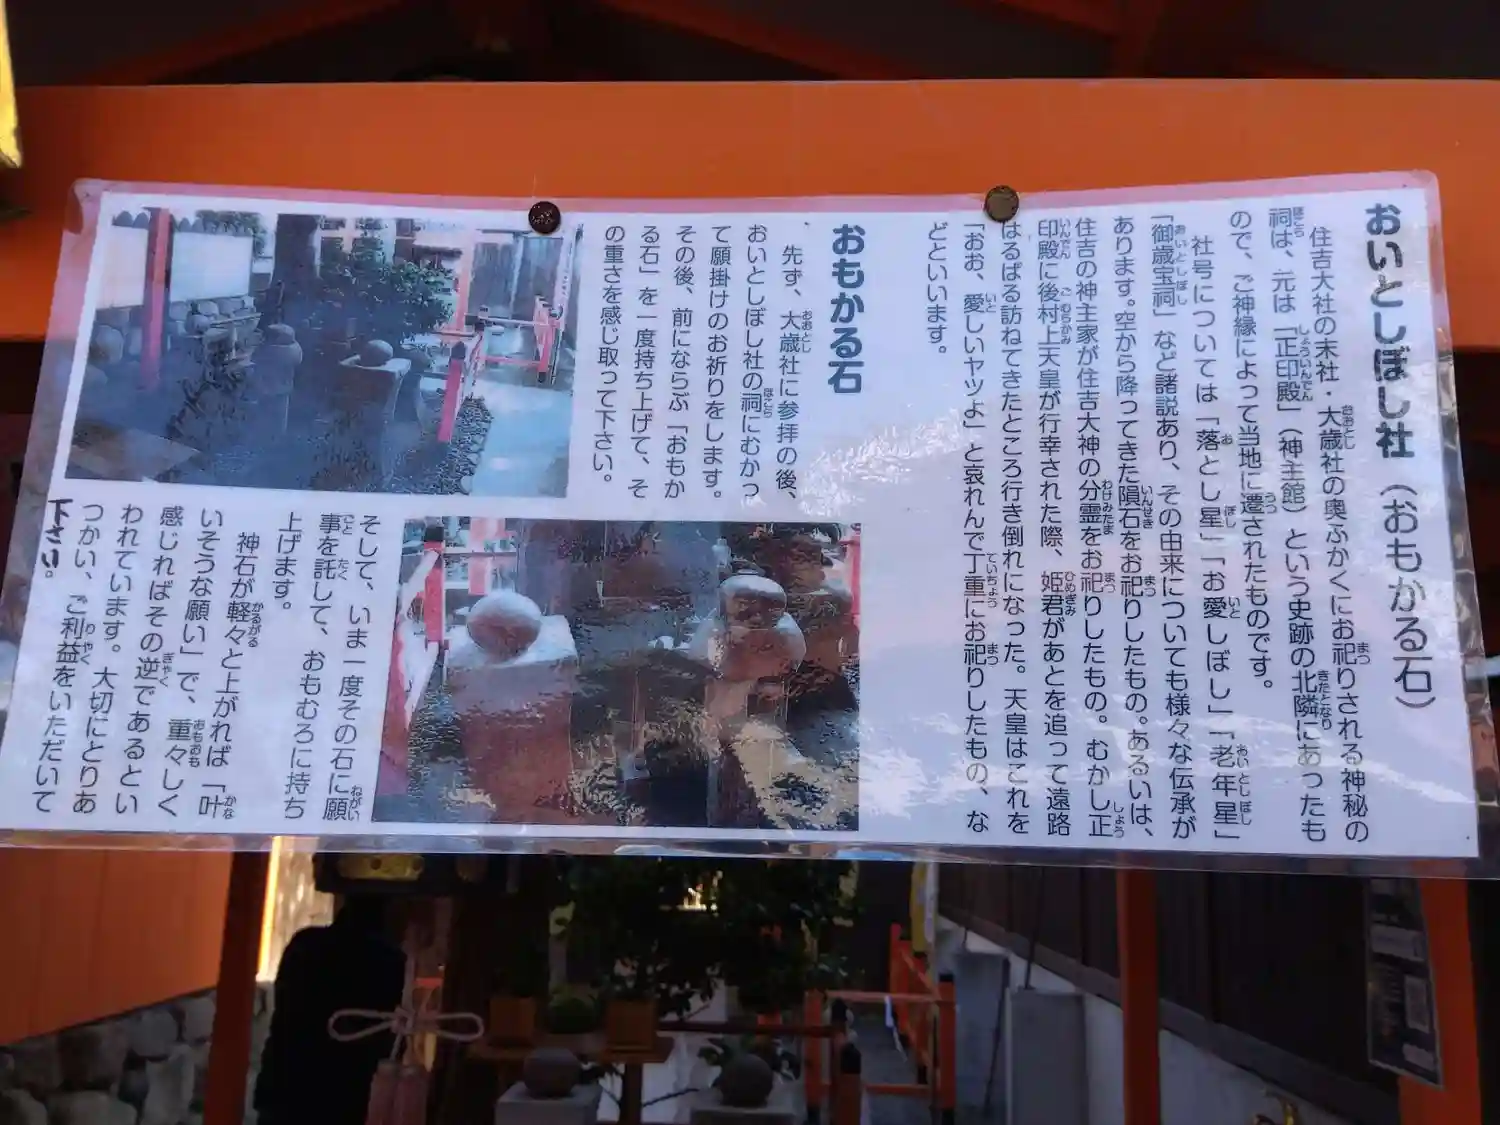 おいとしぼし社（おもかる石）
住吉大社の末社・大歳社の奥ふかくにお祀りされる神秘の
祠は、元は「正印殿」（神主館）という史跡の北隣にあったも
ので、ご神縁によって当地に遷されたものです。
社号については「落とし星」「お愛しぼし」「老年星」
「御歳宝祠」など諸説あり、その由来についても様々な伝承が
あります。空から降ってきた隕石をお祀りしたもの。あるいは、
住吉の神主家が住吉大神の分霊をお祀りしたもの。むかし正
印殿に後村上天皇が行幸された際、姫君があとを追って遠路
はるばる訪ねてきたところ行き倒れになった。天皇はこれを
「おお、愛しいヤツよ」と哀れんで丁重にお祀りしたもの、な
どといいます。
おもかる石
先ず、大歳社に参拝の後、
おいとしぼし社の祠にむかっ
て願掛けのお祈りをします。
その後、前にならぶ「おもか
る石」を一度持ち上げて、そ
の重さを感じ取って下さい。
そして、いま一度その石に願
事を託して、おもむろに持ち
上げます。
神石が軽々と上がれば「叶
いそうな願い」で、重々しく
感じればその逆であるとい
われています。大切にとりあ
つかい、ご利益をいただいて
下さい。